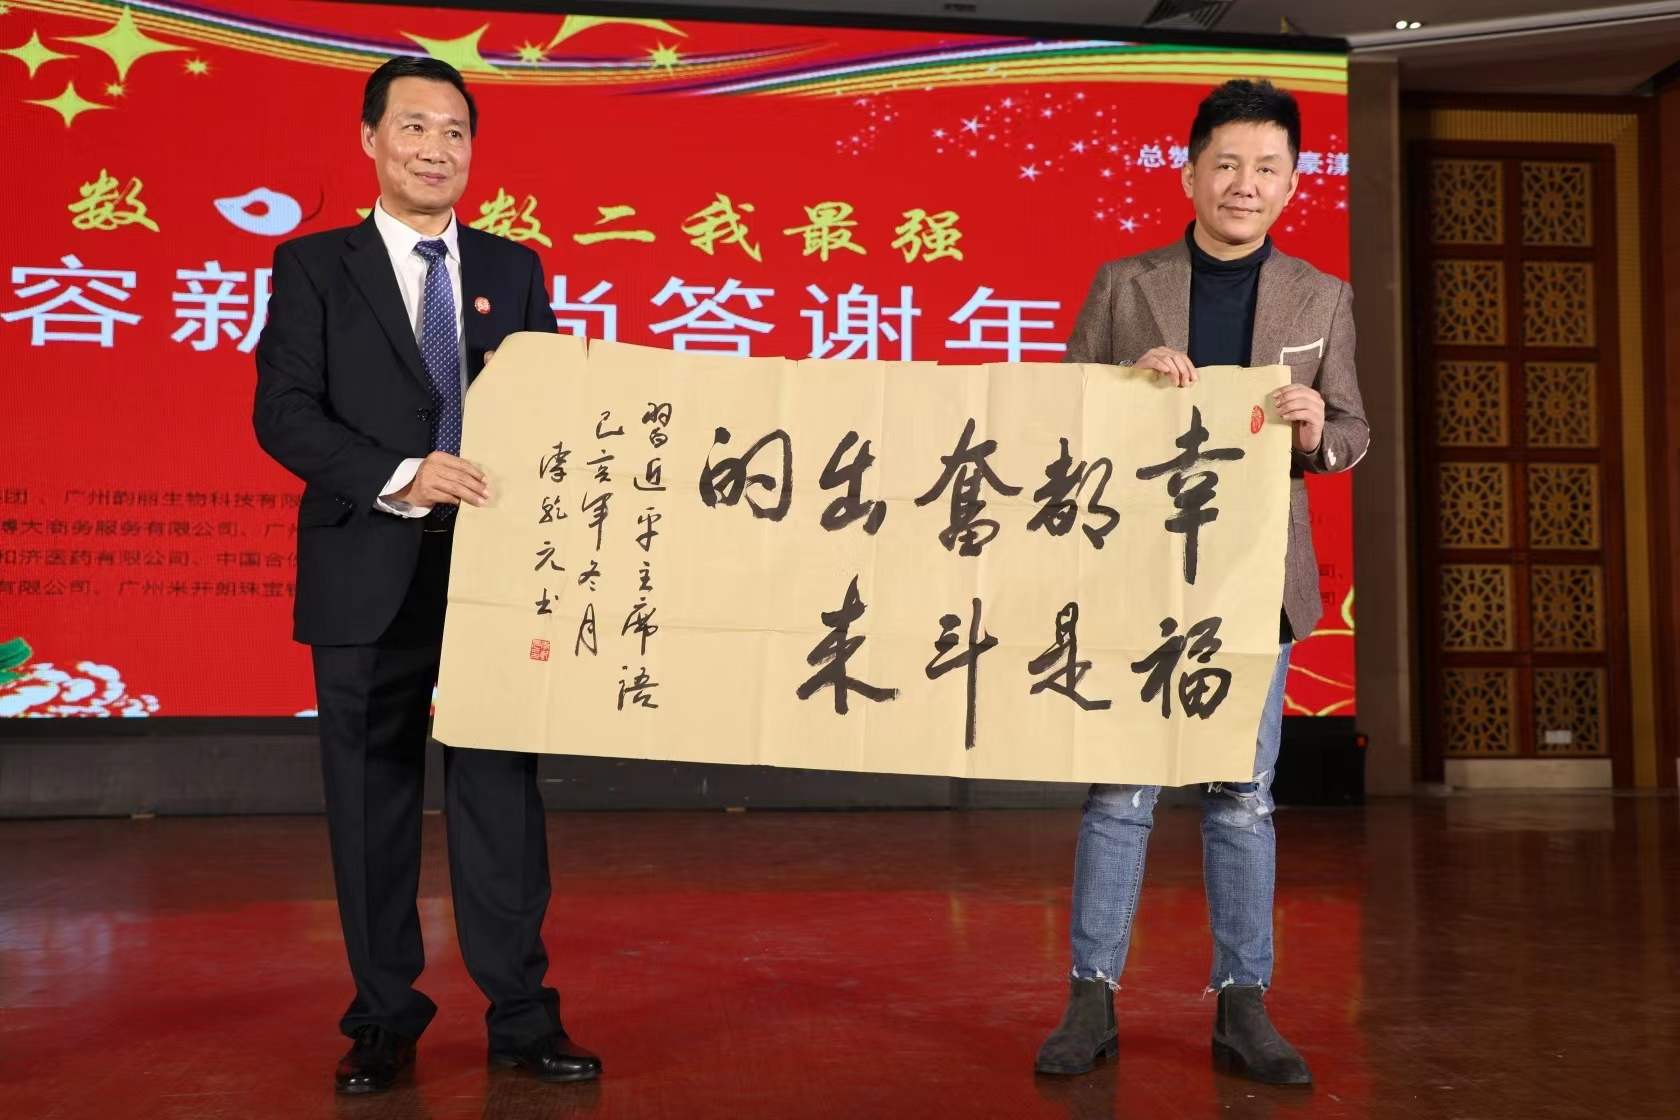 总赞 豪漾
数 数二我最强
容新 尚答谢年
集团、广州韵丽生物科技有限
博大商务服务有限公司、广州
和济医药有限公司、中国合伙
有限公司、广州米开朗珠宝
幸福
都是
奋斗
出来
的
習近平主席语
己亥年冬月
乾元书